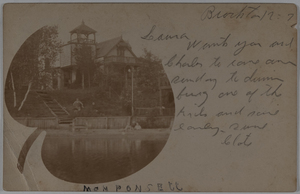 Brockton 12-7
Laura
Want you and
Charles to come over
sunday to dinner
bring one of the
kids and come
early. Sure
MONPONSETT